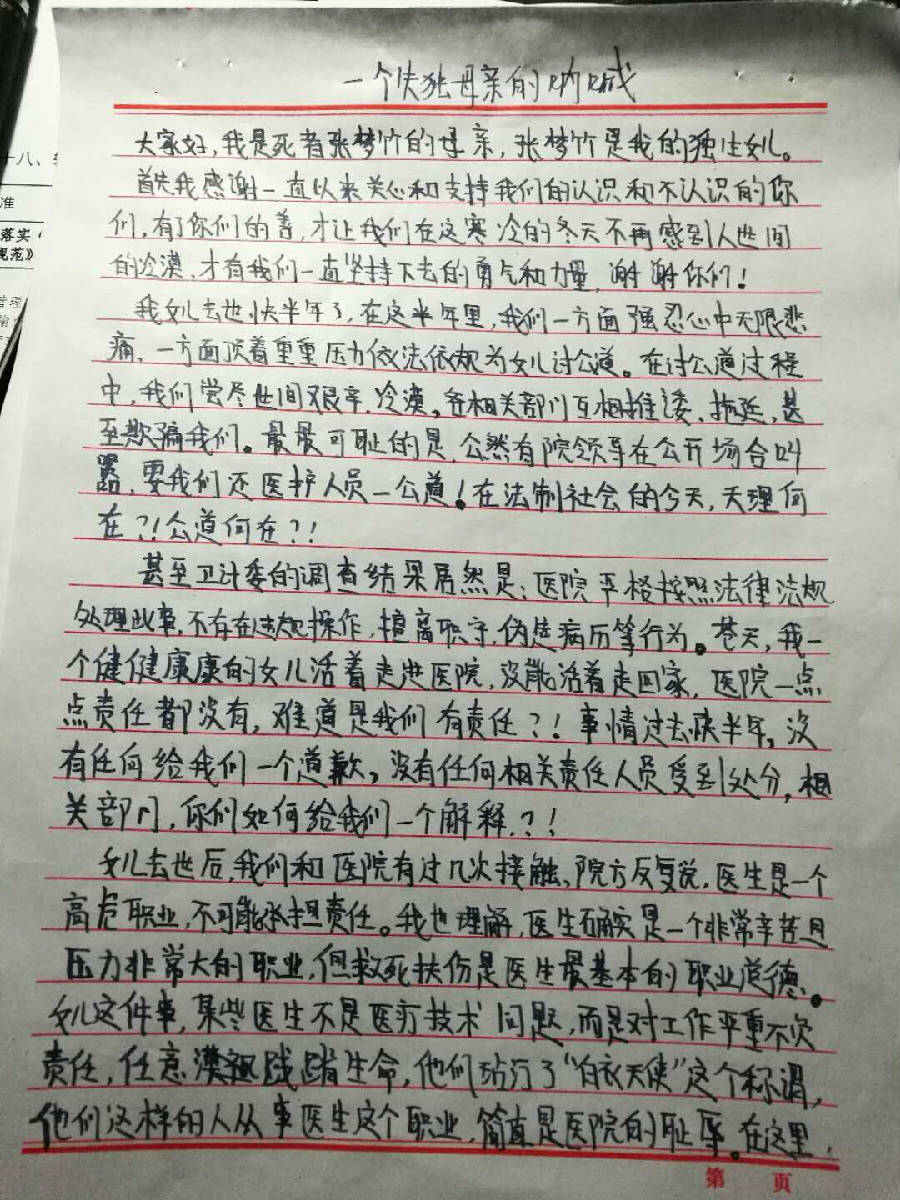 一个失独母亲的呐喊
大家好,我是死者张梦竹的母亲,张梦竹是我的独生女儿。
首先我感谢一直以来关心和支持我们的认识和不认识的你
们,有了你们的善,才让我们在这寒冷的冬天不再感到人世间
的冷漠,才有我们一直坚持下去的勇气和力量,谢谢你们!
我女儿去世快半年了,在这半年里,我们一方面强忍心中无限悲
痛,一方面顶着重重压力依法依规为女儿讨公道。在讨公道过程
中,我们尝尽世间艰辛、冷漠。各相关部门互相推诿、拖延,甚
至欺骗我们。最最可耻的是,公然有院领导在公开场合叫
嚣,要我们还医护人员一公道!在法制社会的今天,天理何
在?!公道何在?!
甚至卫计委的调查结果居然是:医院严格按照法律法规
处理此事,不存在违规操作,擅离职守,伪造病历等行为。苍天,我一
个健健康康的女儿活着走进医院,没能活着走回家,医院一点
点责任都没有,难道是我们有责任?!事情过去快半年,没
有任何给我们一个道歉,没有任何相关责任人员受到处分,相
关部门,你们如何给我们一个解释?!
女儿去世后,我们和医院有过几次接触,院方反复说,医生是一个
高危职业,不可能承担责任。我也理解,医生确实是一个非常辛苦且
压力非常大的职业,但救死扶伤是医生最基本的职业道德。
女儿这件事,某些医生不是医疗技术问题,而是对工作严重不负
责任,任意漠视践踏生命,他们玷污了“白衣天使”这个称谓,
他们这样的人从事医生这个职业,简直是医院的耻辱。在这里,
第 页
十八、
准
落实(
规范》